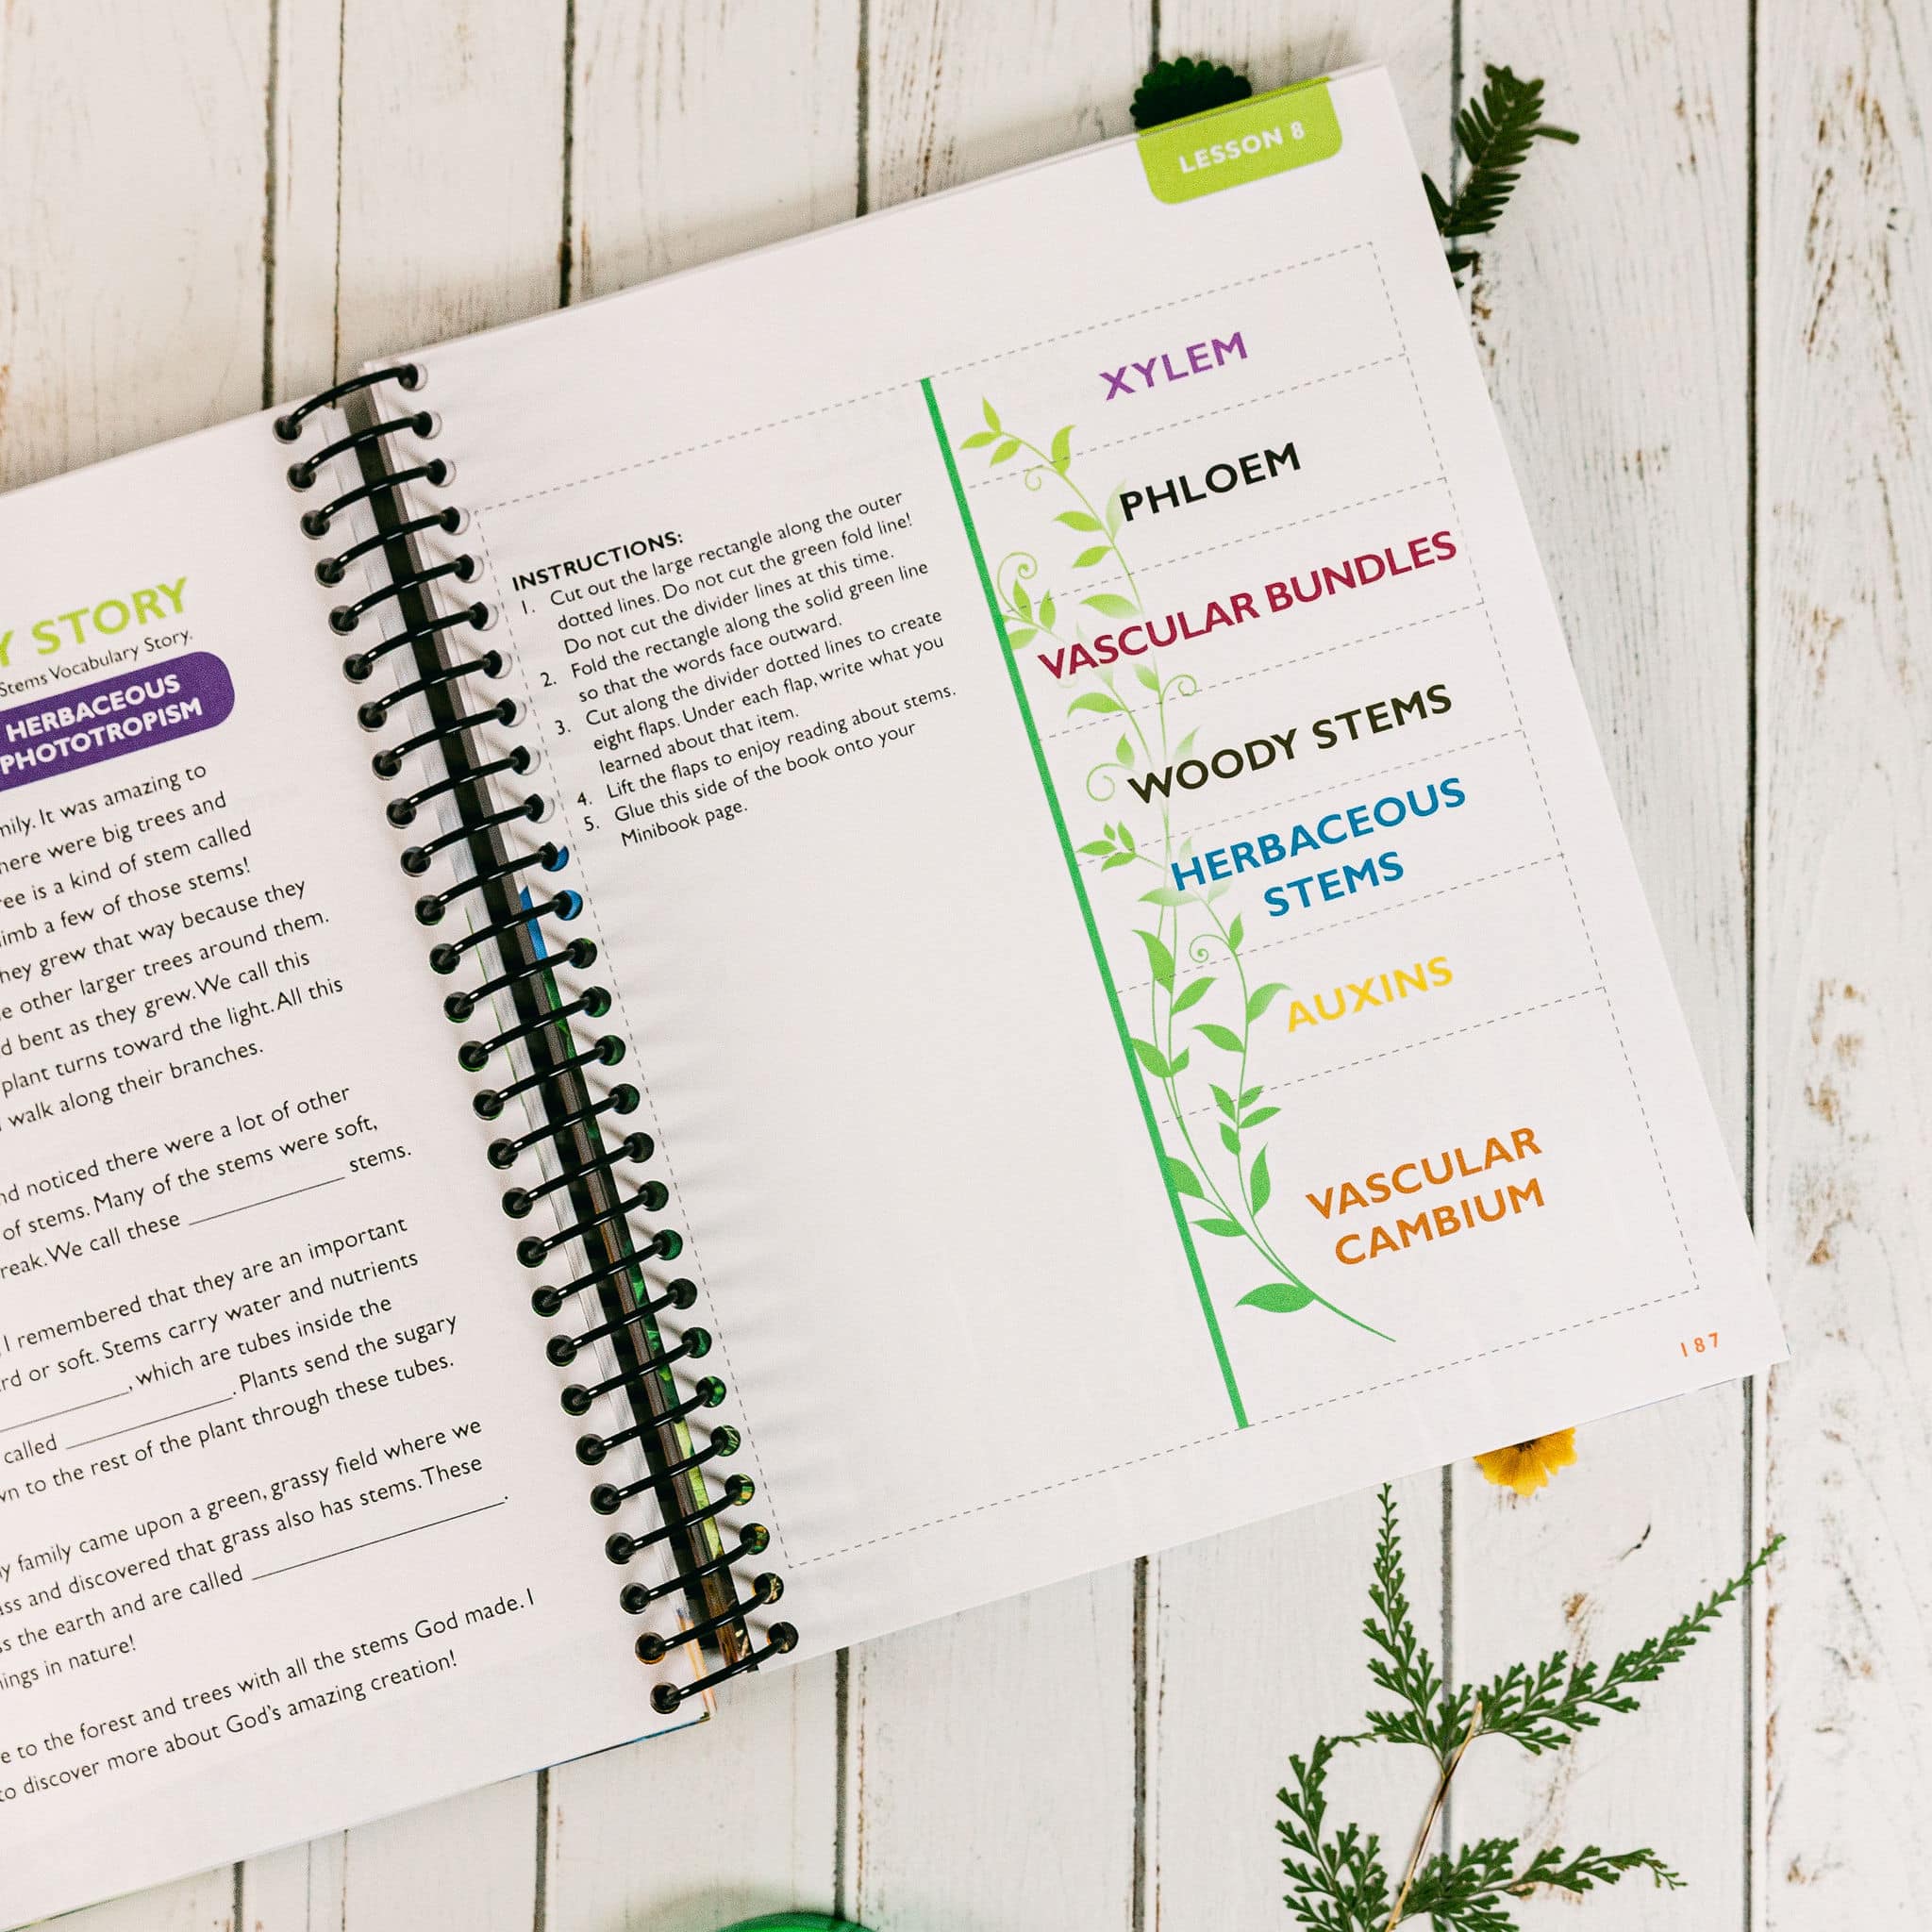 Y STORY
Stems Vocabulary Story.
HERBACEOUS
PHOTOTROPISM
It was amazing to
there were big trees and
is a kind of stem called
a few of those stems!
they grew that way because they
other larger trees around them.
bent as they grew. We call this
plant turns toward the light. All this
walk along their branches.
noticed there were a lot of other
of stems. Many of the stems were soft,
We call these ____________ stems.
I remembered that they are an important
or soft. Stems carry water and nutrients
____________, which are tubes inside the
called ____________. Plants send the sugary
to the rest of the plant through these tubes.
family came upon a green, grassy field where we
and discovered that grass also has stems. These
the earth and are called ____________.
in nature!
to the forest and trees with all the stems God made. I
to discover more about God's amazing creation!
LESSON 8
INSTRUCTIONS:
1. Cut out the large rectangle along the outer
dotted lines. Do not cut the green fold line!
Do not cut the divider lines at this time.
2. Fold the rectangle along the solid green line
so that the words face outward.
3. Cut along the divider dotted lines to create
eight flaps. Under each flap, write what you
learned about that item.
4. Lift the flaps to enjoy reading about stems.
5. Glue this side of the book onto your
Minibook page.
XYLEM
PHLOEM
VASCULAR BUNDLES
WOODY STEMS
HERBACEOUS
STEMS
AUXINS
VASCULAR
CAMBIUM
187